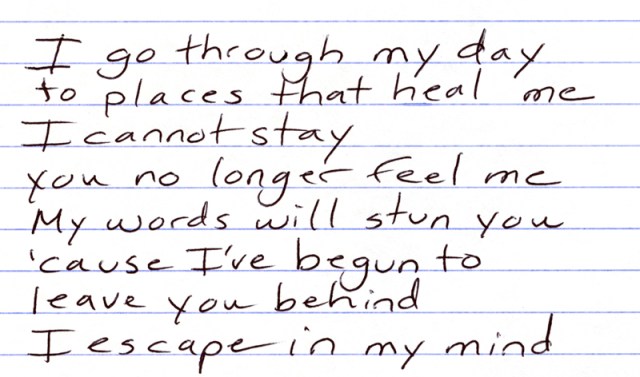 I go through my day
to places that heal me
I cannot stay
you no longer feel me
My words will stun you
'cause I've begun to
leave you behind
I escape in my mind